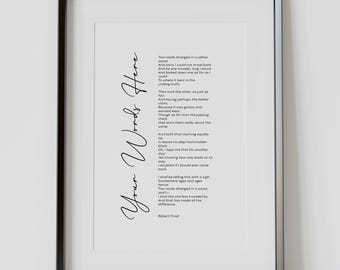 Your Words Here
Two roads diverged in a yellow
wood,
And sorry I could not travel both
And be one traveler, long I stood
And looked down one as far as I
could
To where it bent in the
undergrowth;
Then took the other, as just as
fair,
And having perhaps the better
claim,
Because it was grassy and
wanted wear;
Though as for that the passing
there
Had worn them really about the
same,
And both that morning equally
lay
In leaves no step had trodden
black.
Oh, I kept the first for another
day!
Yet knowing how way leads on to
way,
I doubted if I should ever come
back.
I shall be telling this with a sigh
Somewhere ages and ages
hence:
Two roads diverged in a wood,
and I—
I took the one less traveled by,
And that has made all the
difference.
Robert Frost